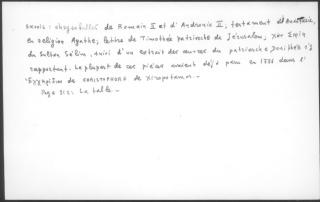 : chrysobulles de Romain II et d'Andronic II; testament d'
en religion Agathe; lettre de Timothée patriarche de Jérusalem;
du Sultan Sélim, suivi d'un extrait des œuvres du patriarche Dosithée s'y
rapportant. La plupart de ces pièces avaient déjà paru en 1776 dans l'
de CHRISTOPHORE de Xiropotamou.-
Page 312: La table.-